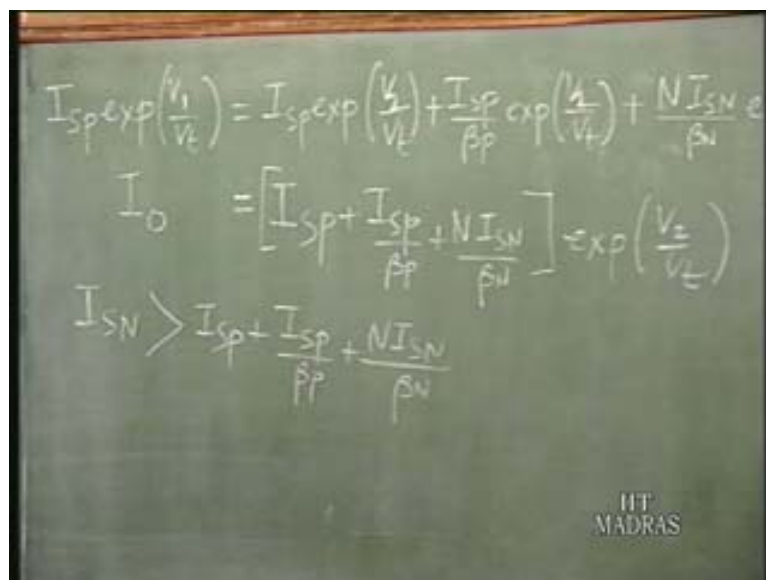 I_SP exp(V_1/V_t) = I_SP exp(V_2/V_t) + I_SP/βP exp(V_2/V_t) + N I_SN/βN e
I_0 = [I_SP + I_SP/βP + N I_SN/βN] exp(V_2/V_t)
I_SN > I_SP + I_SP/βP + N I_SN/βN
IIT
MADRAS